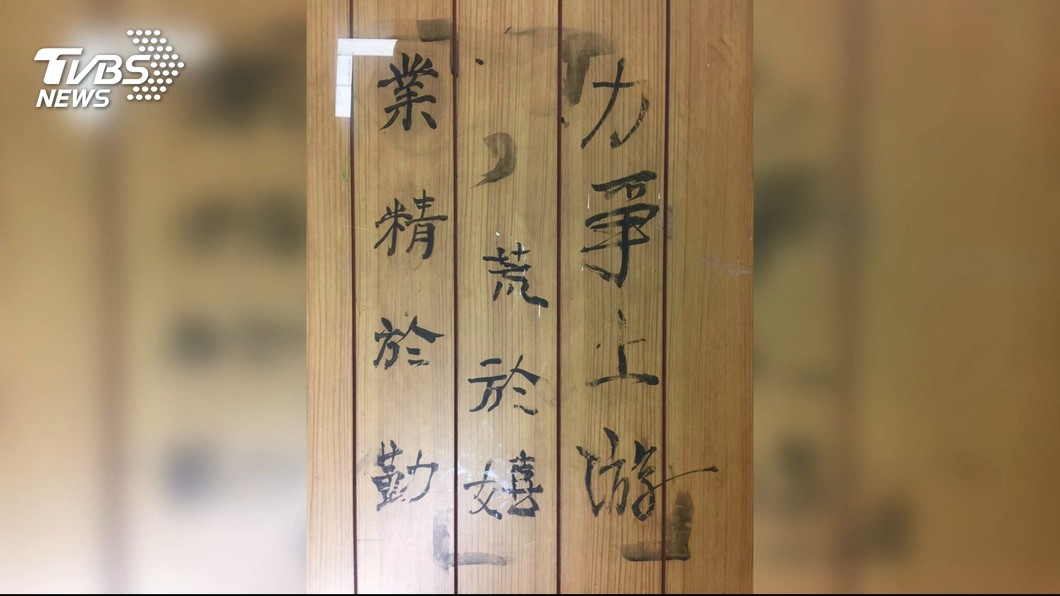 TVBS
NEWS
業精於勤
,荒於嬉
力爭上游